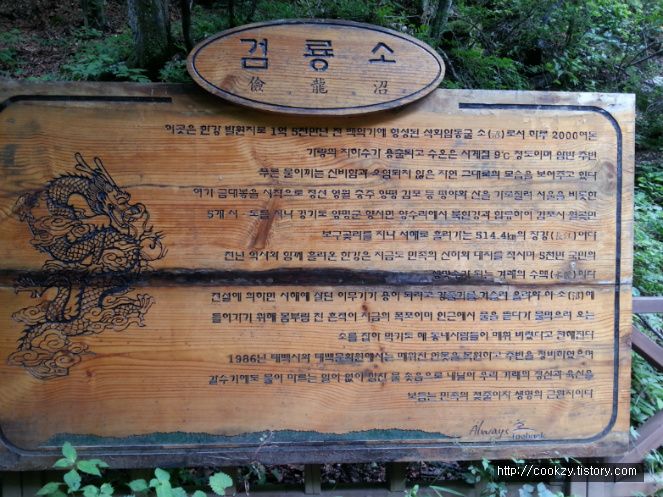 검룡소
儉龍沼
이곳은 한강 발원지로 1억 5천만년 전 백악기에 형성된 석회암동굴 소(沼)로서 하루 2000여톤
가량의 지하수가 용출되고 수온은 사계절 9℃ 정도이며 암반 주변
푸른 물이끼는 신비함과 오염되지 않은 자연 그대로의 모습을 보여주고 있다
여기 금대봉을 시작으로 정선 영월 충주 양평 김포 등 평야와 산을 가로질러 서울을 비롯한
5개 시·도를 지나 경기도 양평군 양서면 양수리에서 북한강과 합류하여 김포시 월곶면
보구곶리를 지나 서해로 흘러가는 514.4㎞의 장강(長江)이다
천년 역사와 함께 흘러온 한강은 지금도 민족의 산야와 대지를 적시며 5천만 국민의
생명수가 되는 겨레의 수맥(水脈)이다
전설에 의하면 서해에 살던 이무기가 용이 되려고 강줄기를 거슬러 올라와 이 소(沼)에
들어가기 위해 몸부림 친 흔적이 지금의 폭포이며 인근에서 물을 먹다가 물먹으러 오는
소를 잡아 먹기도 해 동네사람들이 메워 버렸다고 전해진다
1986년 태백시와 태백문화원에서는 메워진 연못을 복원하고 주변을 정비하였으며
갈수기에도 물이 마르는 일이 없이 힘찬 물 솟음으로 내달아 우리 겨레의 정신과 육신을
보듬는 민족의 젖줄이자 생명의 근원지이다
Always
http://cookzy.tistory.com